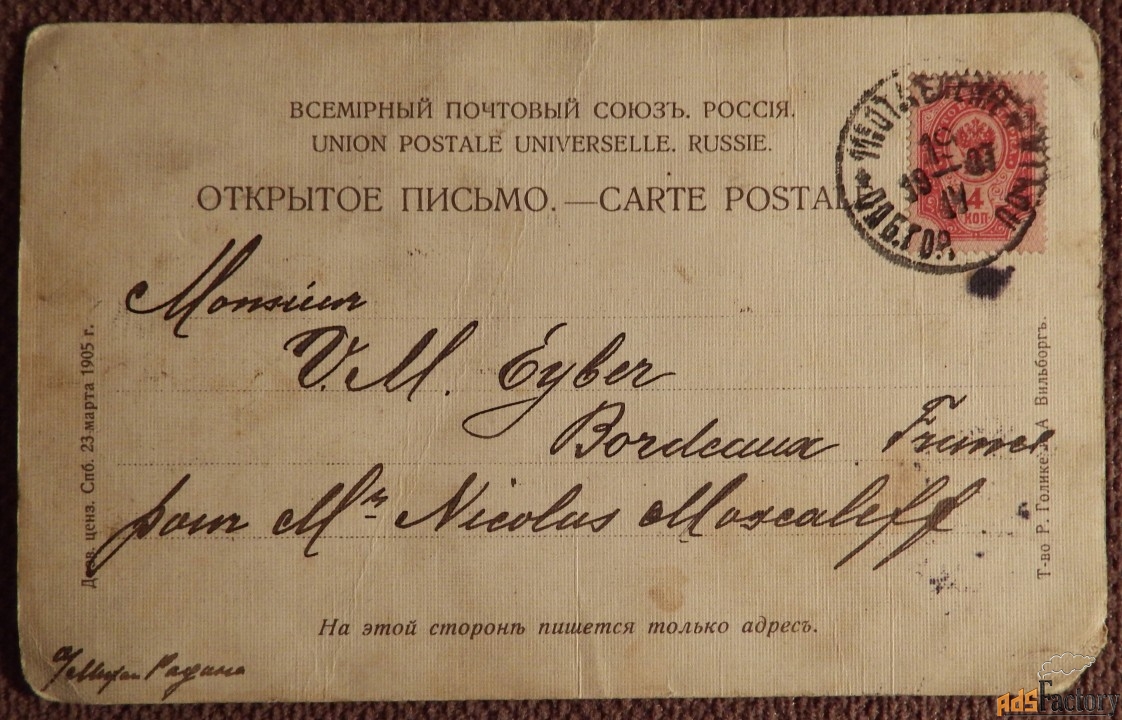 ВСЕМІРНЫЙ ПОЧТОВЫЙ СОЮЗЪ. РОССІЯ.
UNION POSTALE UNIVERSELLE. RUSSIE.
ОТКРЫТОЕ ПИСЬМО.—CARTE POSTALE
4
КОП
Monsieur
V. M. Eyber
Bordeaux France
pour Mr Nicolas Moscaleff
Дозв. ценз. Спб. 23 марта 1905 г.
Т-во Р. Голике А Вильборгъ.
На этой сторонѣ пишется только адресъ.
AdsFactory